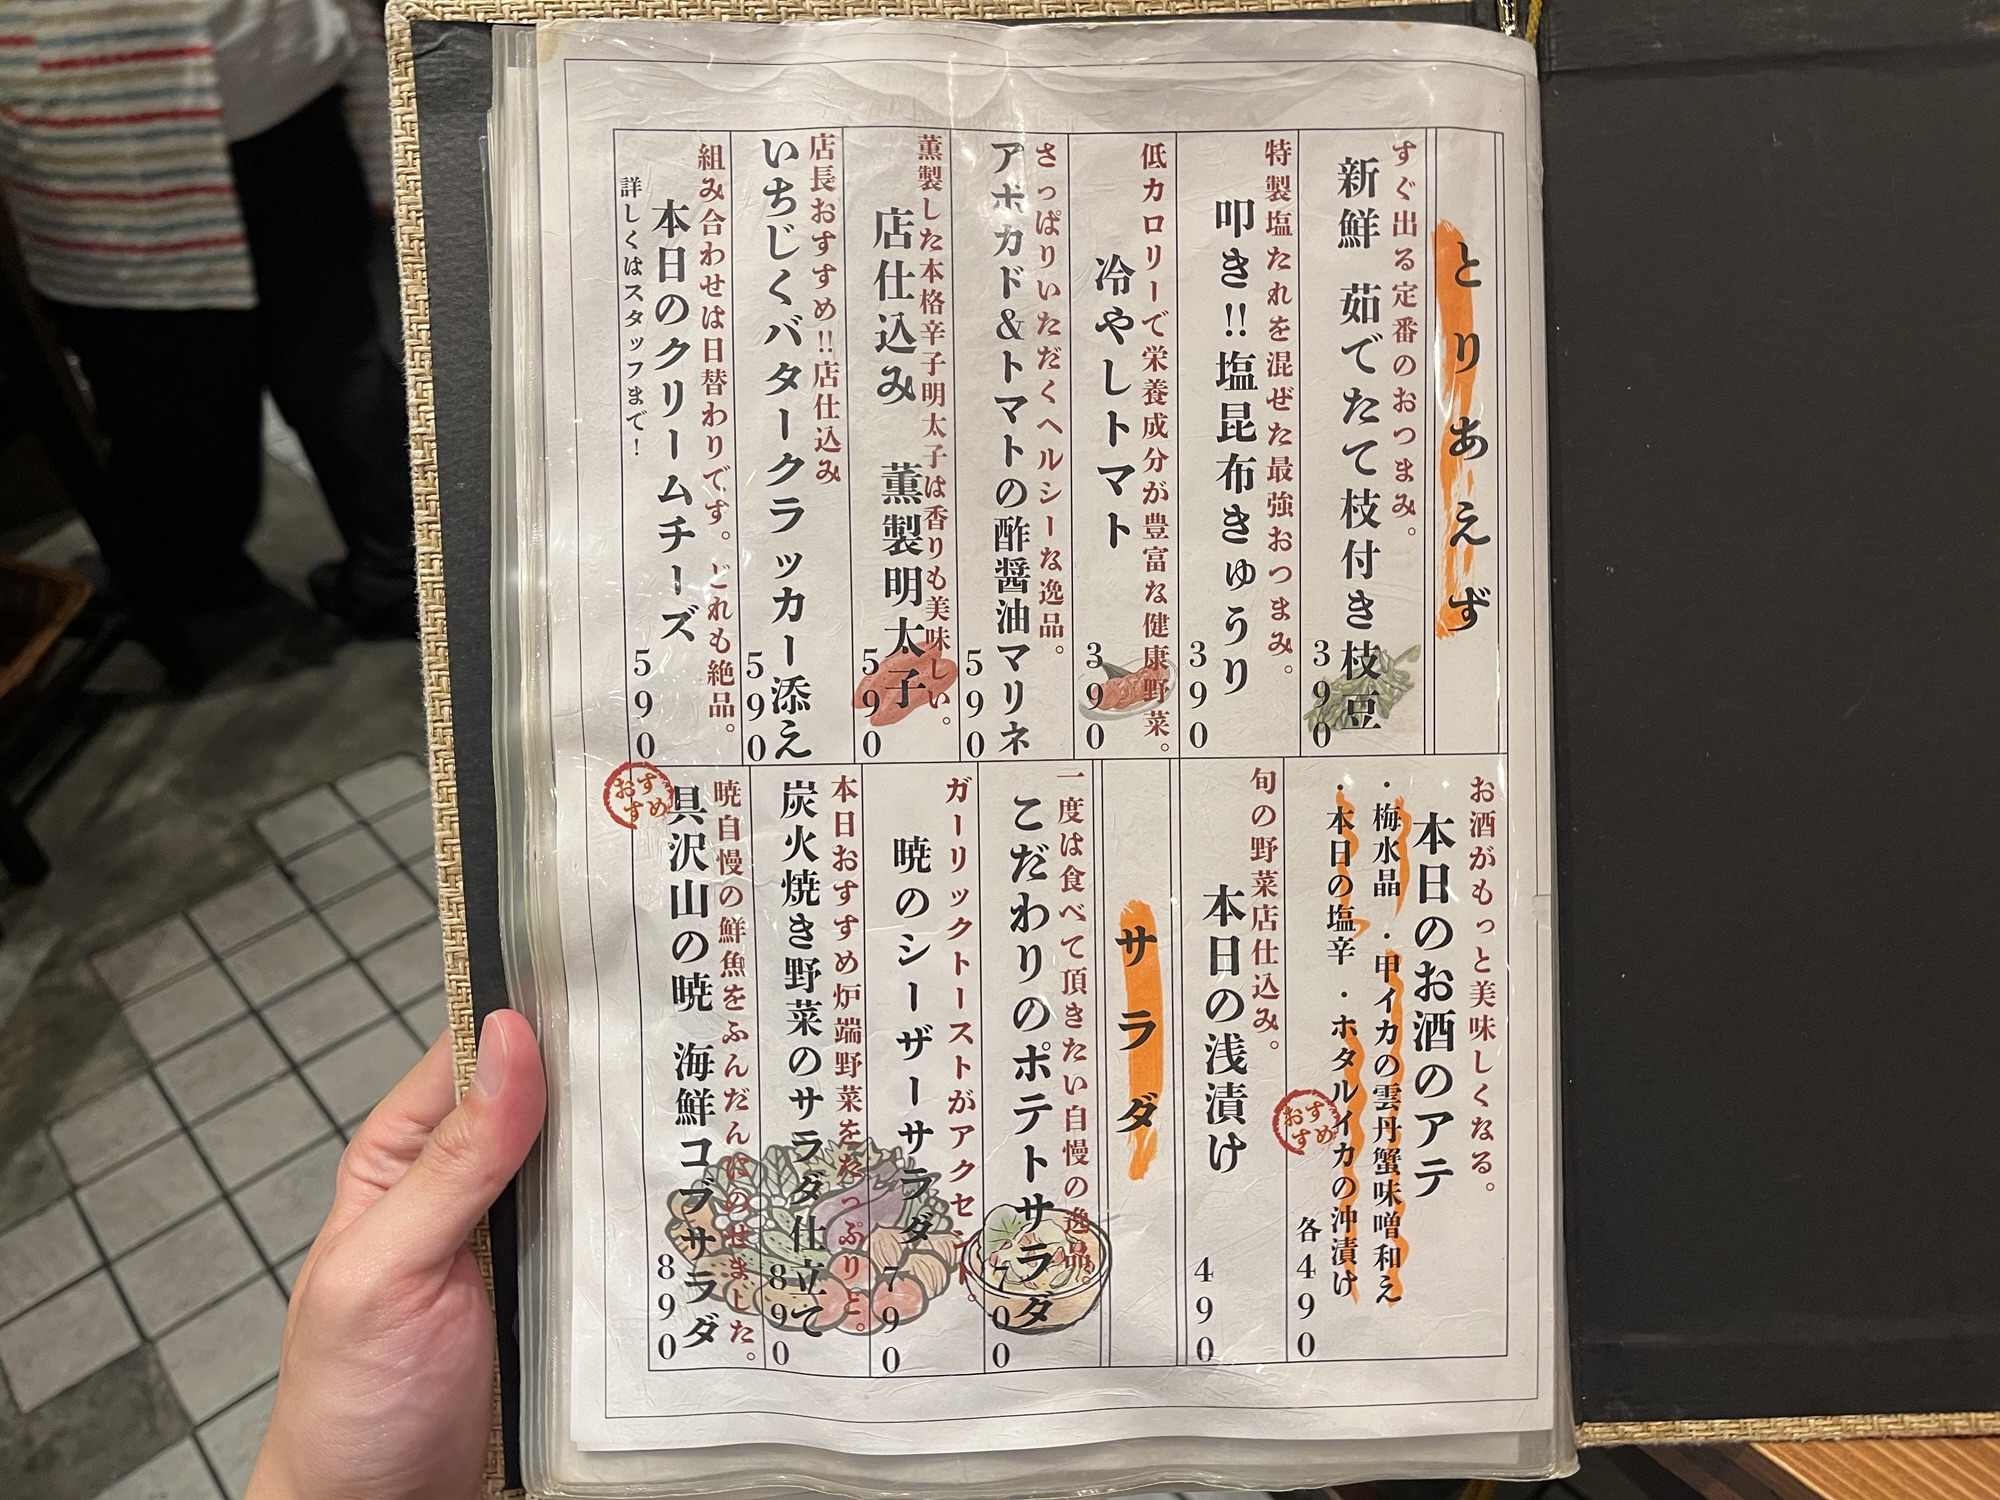 とりあえず
すぐ出る定番のおつまみ。
新鮮 茹でたて枝付き枝豆
390
特製塩たれを混ぜた最強おつまみ。
叩き!!塩昆布きゅうり
390
低カロリーで栄養成分が豊富な健康野菜。
冷やしトマト
390
さっぱりいただくヘルシーな逸品。
アボカド&トマトの酢醤油マリネ
590
薫製した本格辛子明太子は香りも美味しい。
店仕込み 薫製明太子
590
店長おすすめ!!店仕込み
いちじくバタークラッカー添え
590
組み合わせは日替わりです。どれも絶品。
本日のクリームチーズ
詳しくはスタッフまで!
590
お酒がもっと美味しくなる。
本日のお酒のアテ
・梅水晶 ・甲イカの雲丹蟹味噌和え
・本日の塩辛 ・ホタルイカの沖漬け
おすすめ
各490
旬の野菜店仕込み。
本日の浅漬け
490
サラダ
一度は食べて頂きたい自慢の逸品。
こだわりのポテトサラダ
700
ガーリックトーストがアクセント。
暁のシーザーサラダ
790
本日おすすめ炉端野菜をたっぷりと。
炭火焼き野菜のサラダ仕立て
890
暁自慢の鮮魚をふんだんにのせました。
具沢山の暁 海鮮コブサラダ
おすすめ
890